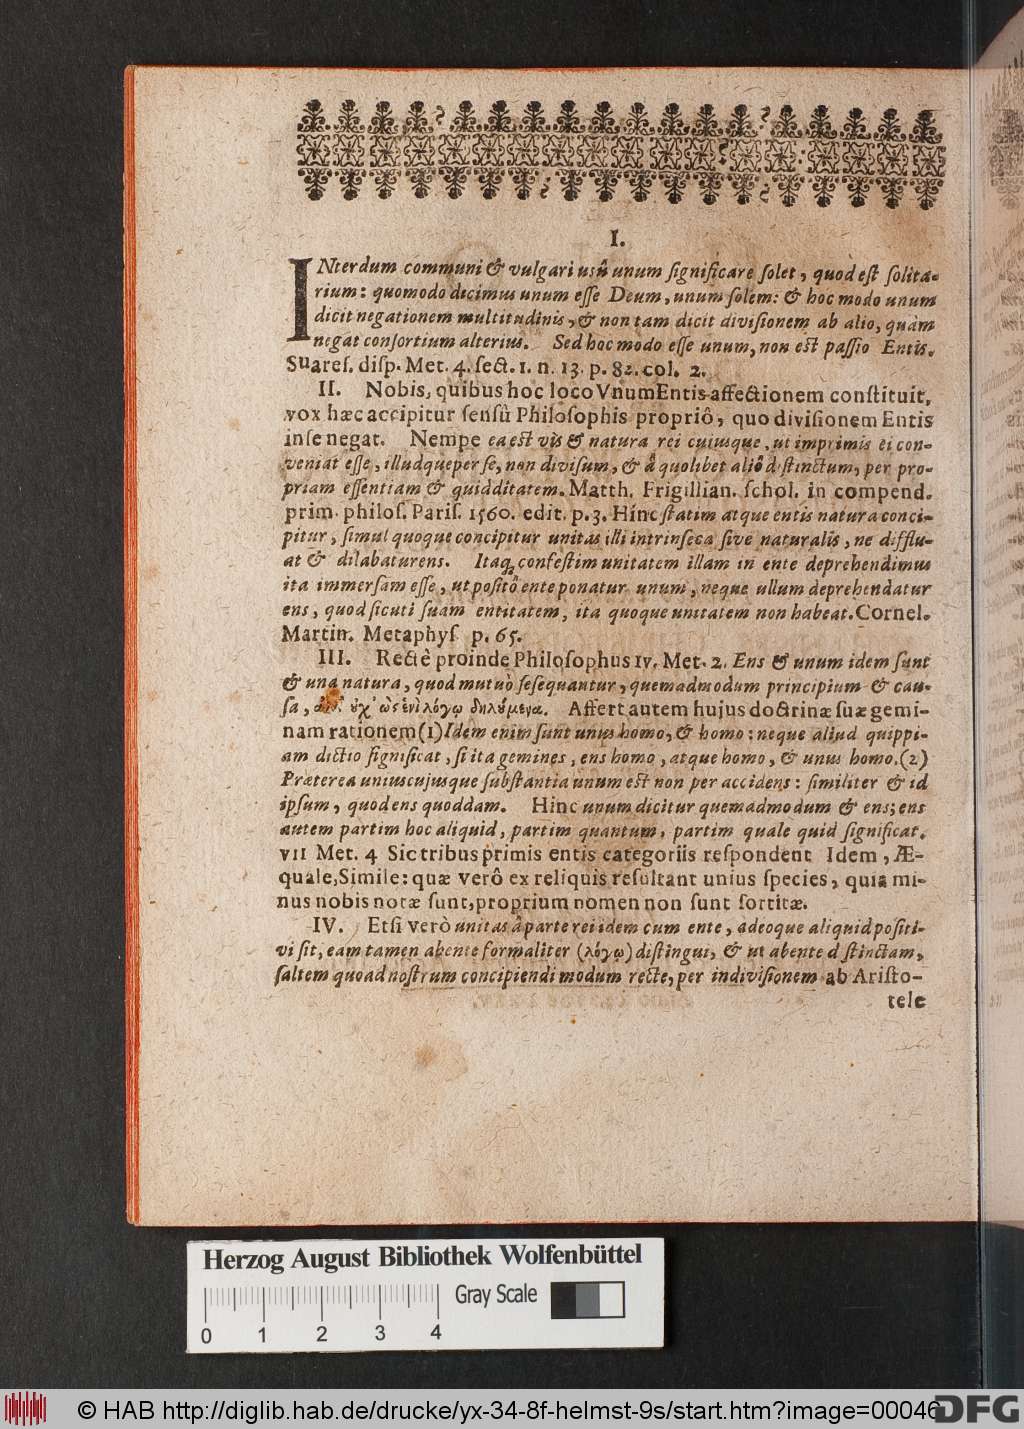 I.
INterdum communi & vulgari usu unum significare solet, quod est solita-
rium: quomodo dicimus unum esse Deum, unum solem: & hoc modo unum
dicit negationem multitudinis, & non tam dicit divisionem ab alio, quàm
negat consortium alterius. Sed hoc modo esse unum, non est passio Entis.
Suares. disp. Met. 4. sect. 1. n. 13. p. 82. col. 2.
II. Nobis, quibus hoc loco Vnum Entis affectionem constituit,
vox hæc accipitur sensû Philosophis propriô, quo divisionem Entis
in se negat. Nempe ea est vis & natura rei cuiusque, ut imprimis ei con-
veniat esse, illudque per se, non divisum, & â quolibet aliô distinctum, per pro-
priam essentiam & quidditatem. Matth. Frigillian. schol. in compend.
prim. philos. Paris. 1560. edit. p. 3. Hinc statim atque entis natura conci-
pitur, simul quoque concipitur unitas illi intrinseca sive naturalis, ne difflu-
at & dilabatur ens. Itaq; confestim unitatem illam in ente deprehendimus
ita immersam esse, ut positô ente ponatur unum, neque ullum deprehendatur
ens, quod sicuti suam entitatem, ita quoque unitatem non habeat. Cornel.
Martin. Metaphys p. 65.
III. Rectè proinde Philosophus IV. Met. 2. Ens & unum idem sunt
& una natura, quod mutuò sese quantur, quemadmodum principium & cau-
sa, ὐχ' ὡς ἑνὶ λόγῳ δηλύμενα. Affert autem hujus doctrinæ suæ gemi-
nam rationem (1) Idem enim sunt unus homo, & homo: neque aliud quippi-
am dictio significat, si ita gemines, ens homo, atque homo, & unus homo. (2)
Præterea uniuscujusque substantia unum est non per accidens: similiter & id
ipsum, quod ens quoddam. Hinc unum dicitur quemadmodum & ens; ens
autem partim hoc aliquid, partim quantum, partim quale quid significat.
VII Met. 4 Sic tribus primis entis categoriis respondent Idem, Æ-
quale, Simile: quæ verô ex reliquis resultant unius species, quia mi-
nus nobis notæ sunt, proprium nomen non sunt sortitæ.
IV. Etsi verò unitas â parte rei idem cum ente, adeoque aliquid positi-
vi sit, eam tamen ab ente formaliter (λόγῳ) distingui, & ut ab ente distinctam,
saltem quoad nostrum concipiendi modum recte, per indivisionem ab Aristo-
tele
Herzog August Bibliothek Wolfenbüttel
Gray Scale
0 1 2 3 4
© HAB http://diglib.hab.de/drucke/yx-34-8f-helmst-9s/start.htm?image=00046
DFG